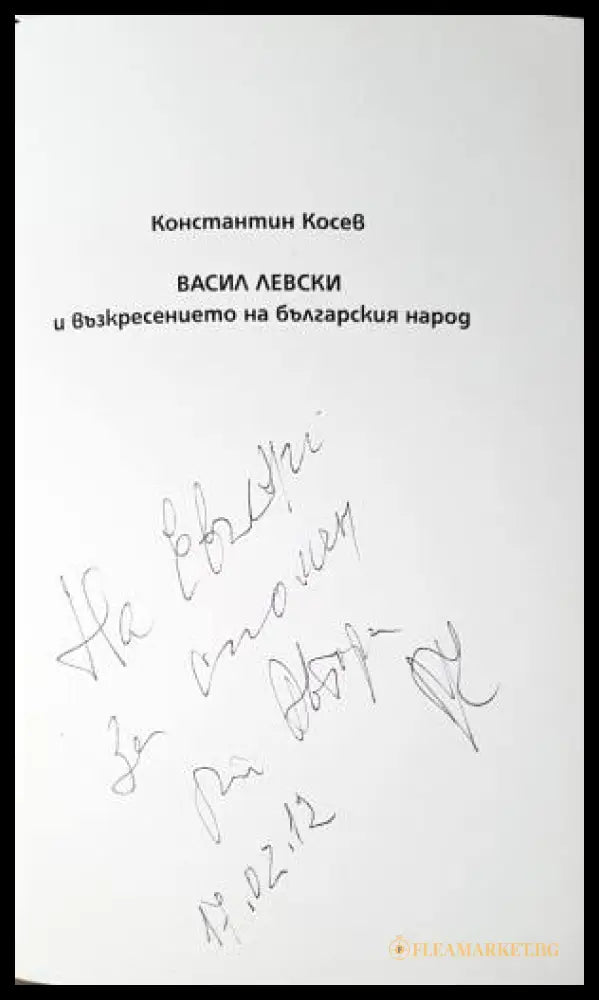 Константин Косев
ВАСИЛ ЛЕВСКИ
и възкресението на българския народ
На
за спомен
от автора
17.02.12
FLEAMARKET.BG